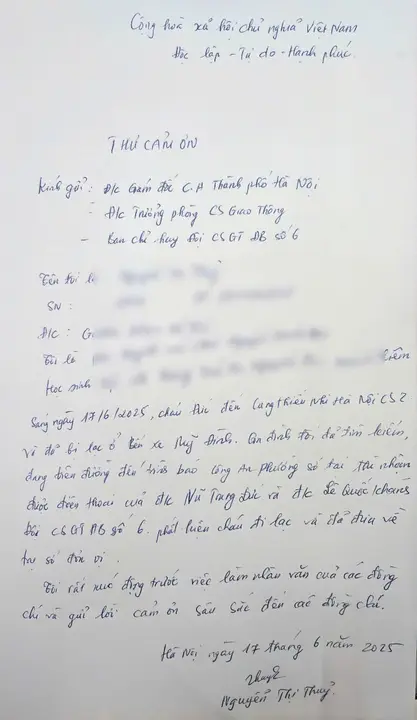 Cộng hoà xã hội chủ nghĩa Việt Nam
Độc lập - Tự do - Hạnh phúc.
THƯ CẢM ƠN
Kính gửi: Đ/c Giám đốc C.A Thành phố Hà Nội
- Đ/c Trưởng phòng CS Giao Thông
- Ban chỉ huy Đội CSGT ĐB số 6
Tên tôi l
SN :
Đ/C : G
Tôi là
Học sinh
Sáng ngày 17/6/2025, cháu Đức đến Cung thiếu Nhi Hà Nội CS2
và đã bị lạc ở bến xe Mỹ Đình. Gia đình tôi đã tìm kiếm,
đang trên đường đến trình báo công An phường sở tại thì nhận
được điện thoại của đ/c Trung Đức và đ/c Lê Quốc Khánh
Đội CSGT ĐB số 6. phát hiện cháu đi lạc và đã đưa về
trụ sở đơn vị.
Tôi rất xúc động trước việc làm nhân văn của các đồng
chí và gửi lời cảm ơn sâu sắc đến các đồng chí.
Hà Nội ngày 17 tháng 6 năm 2025
Nguyễn Thị Thuỷ.